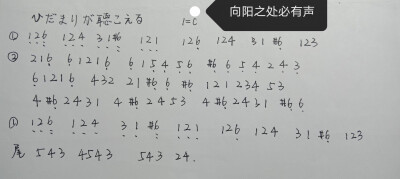 ひだまりが聴こえる 1=C
向阳之处必有声
① 126 124 31#6 121 126 124 31 #6 123
② 216 61216 615456 #6 65424 3
61216 432 21 #6 #6 121234 53
4 #62431 4 #62453 4 #62431 #66
① 126 124 31 #6 121 126 124 31 #6 123
尾 543 4543 543 24.